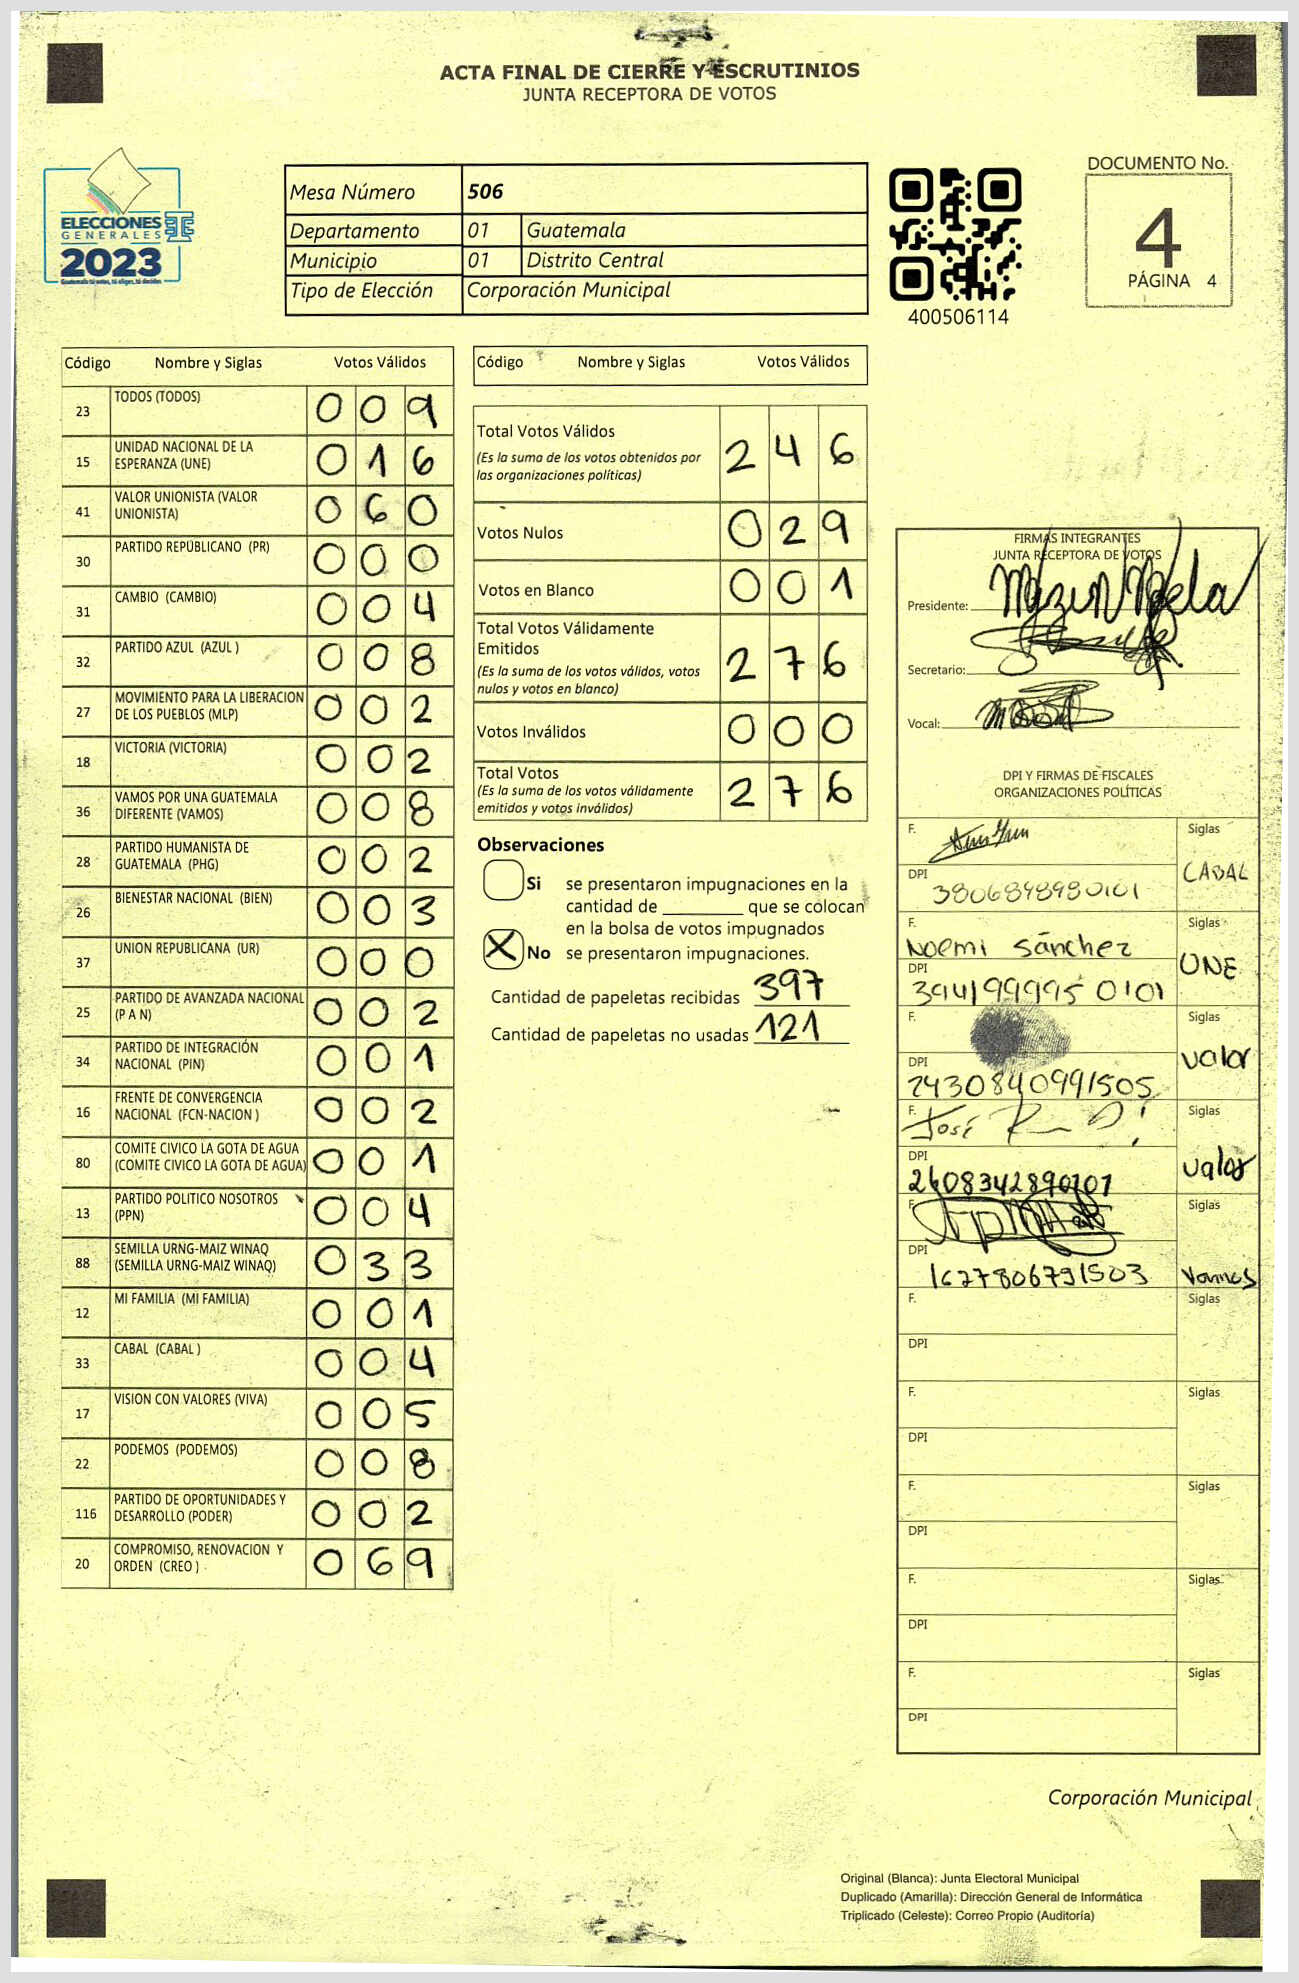 ACTA FINAL DE CIERRE Y ESCRUTINIOS
JUNTA RECEPTORA DE VOTOS
ELECCIONES
GENERALES
2023
Guatemala tú votas, tú eliges, tú decides
Mesa Número 506
Departamento 01 Guatemala
Municipio 01 Distrito Central
Tipo de Elección Corporación Municipal
400506114
DOCUMENTO No.
4
PÁGINA 4
Código Nombre y Siglas Votos Válidos
23 TODOS (TODOS) 0 0 9
15 UNIDAD NACIONAL DE LA
ESPERANZA (UNE) 0 1 6
41 VALOR UNIONISTA (VALOR
UNIONISTA) 0 6 0
30 PARTIDO REPUBLICANO (PR) 0 0 0
31 CAMBIO (CAMBIO) 0 0 4
32 PARTIDO AZUL (AZUL ) 0 0 8
27 MOVIMIENTO PARA LA LIBERACION
DE LOS PUEBLOS (MLP) 0 0 2
18 VICTORIA (VICTORIA) 0 0 2
36 VAMOS POR UNA GUATEMALA
DIFERENTE (VAMOS) 0 0 8
28 PARTIDO HUMANISTA DE
GUATEMALA (PHG) 0 0 2
26 BIENESTAR NACIONAL (BIEN) 0 0 3
37 UNION REPUBLICANA (UR) 0 0 0
25 PARTIDO DE AVANZADA NACIONAL
(P A N) 0 0 2
34 PARTIDO DE INTEGRACIÓN
NACIONAL (PIN) 0 0 1
16 FRENTE DE CONVERGENCIA
NACIONAL (FCN-NACION ) 0 0 2
80 COMITE CIVICO LA GOTA DE AGUA
(COMITE CIVICO LA GOTA DE AGUA) 0 0 1
13 PARTIDO POLITICO NOSOTROS
(PPN) 0 0 4
88 SEMILLA URNG-MAIZ WINAQ
(SEMILLA URNG-MAIZ WINAQ) 0 3 3
12 MI FAMILIA (MI FAMILIA) 0 0 1
33 CABAL (CABAL ) 0 0 4
17 VISION CON VALORES (VIVA) 0 0 5
22 PODEMOS (PODEMOS) 0 0 8
116 PARTIDO DE OPORTUNIDADES Y
DESARROLLO (PODER) 0 0 2
20 COMPROMISO, RENOVACION Y
ORDEN (CREO ) 0 6 9
Código Nombre y Siglas Votos Válidos
Total Votos Válidos 2 4 6
(Es la suma de los votos obtenidos por
las organizaciones políticas)
Votos Nulos 0 2 9
Votos en Blanco 0 0 1
Total Votos Válidamente
Emitidos 2 7 6
(Es la suma de los votos válidos, votos
nulos y votos en blanco)
Votos Inválidos 0 0 0
Total Votos 2 7 6
(Es la suma de los votos válidamente
emitidos y votos inválidos)
Observaciones
Si se presentaron impugnaciones en la
cantidad de ________ que se colocan
en la bolsa de votos impugnados
X No se presentaron impugnaciones.
Cantidad de papeletas recibidas 397
Cantidad de papeletas no usadas 121
FIRMAS INTEGRANTES
JUNTA RECEPTORA DE VOTOS
Presidente:
Secretario:
Vocal:
DPI Y FIRMAS DE FISCALES
ORGANIZACIONES POLÍTICAS
F. Siglas
DPI 3806898980101 CABAL
F. Noemi Sánchez Siglas
DPI 394199995 0101 UNE
F. Siglas
DPI 2430840991505 valor
F. José Siglas
DPI 2608342890101 valor
F. Siglas
DPI 1627806791503 Vamos
F. Siglas
DPI
F. Siglas
DPI
F. Siglas
DPI
F. Siglas
DPI
F. Siglas
DPI
Corporación Municipal
Original (Blanca): Junta Electoral Municipal
Duplicado (Amarilla): Dirección General de Informática
Triplicado (Celeste): Correo Propio (Auditoría)